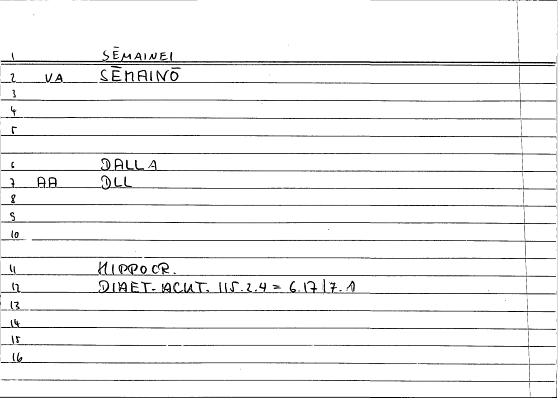 1 SĒMAINEI
2 VA SĒMAINŌ
3
4
5
6 DALLA
7 AA DLL
8
9
10
11 HIPPOCR.
12 DIAET. ACUT. 115.2.4 = 6.17/7.1
13
14
15
16